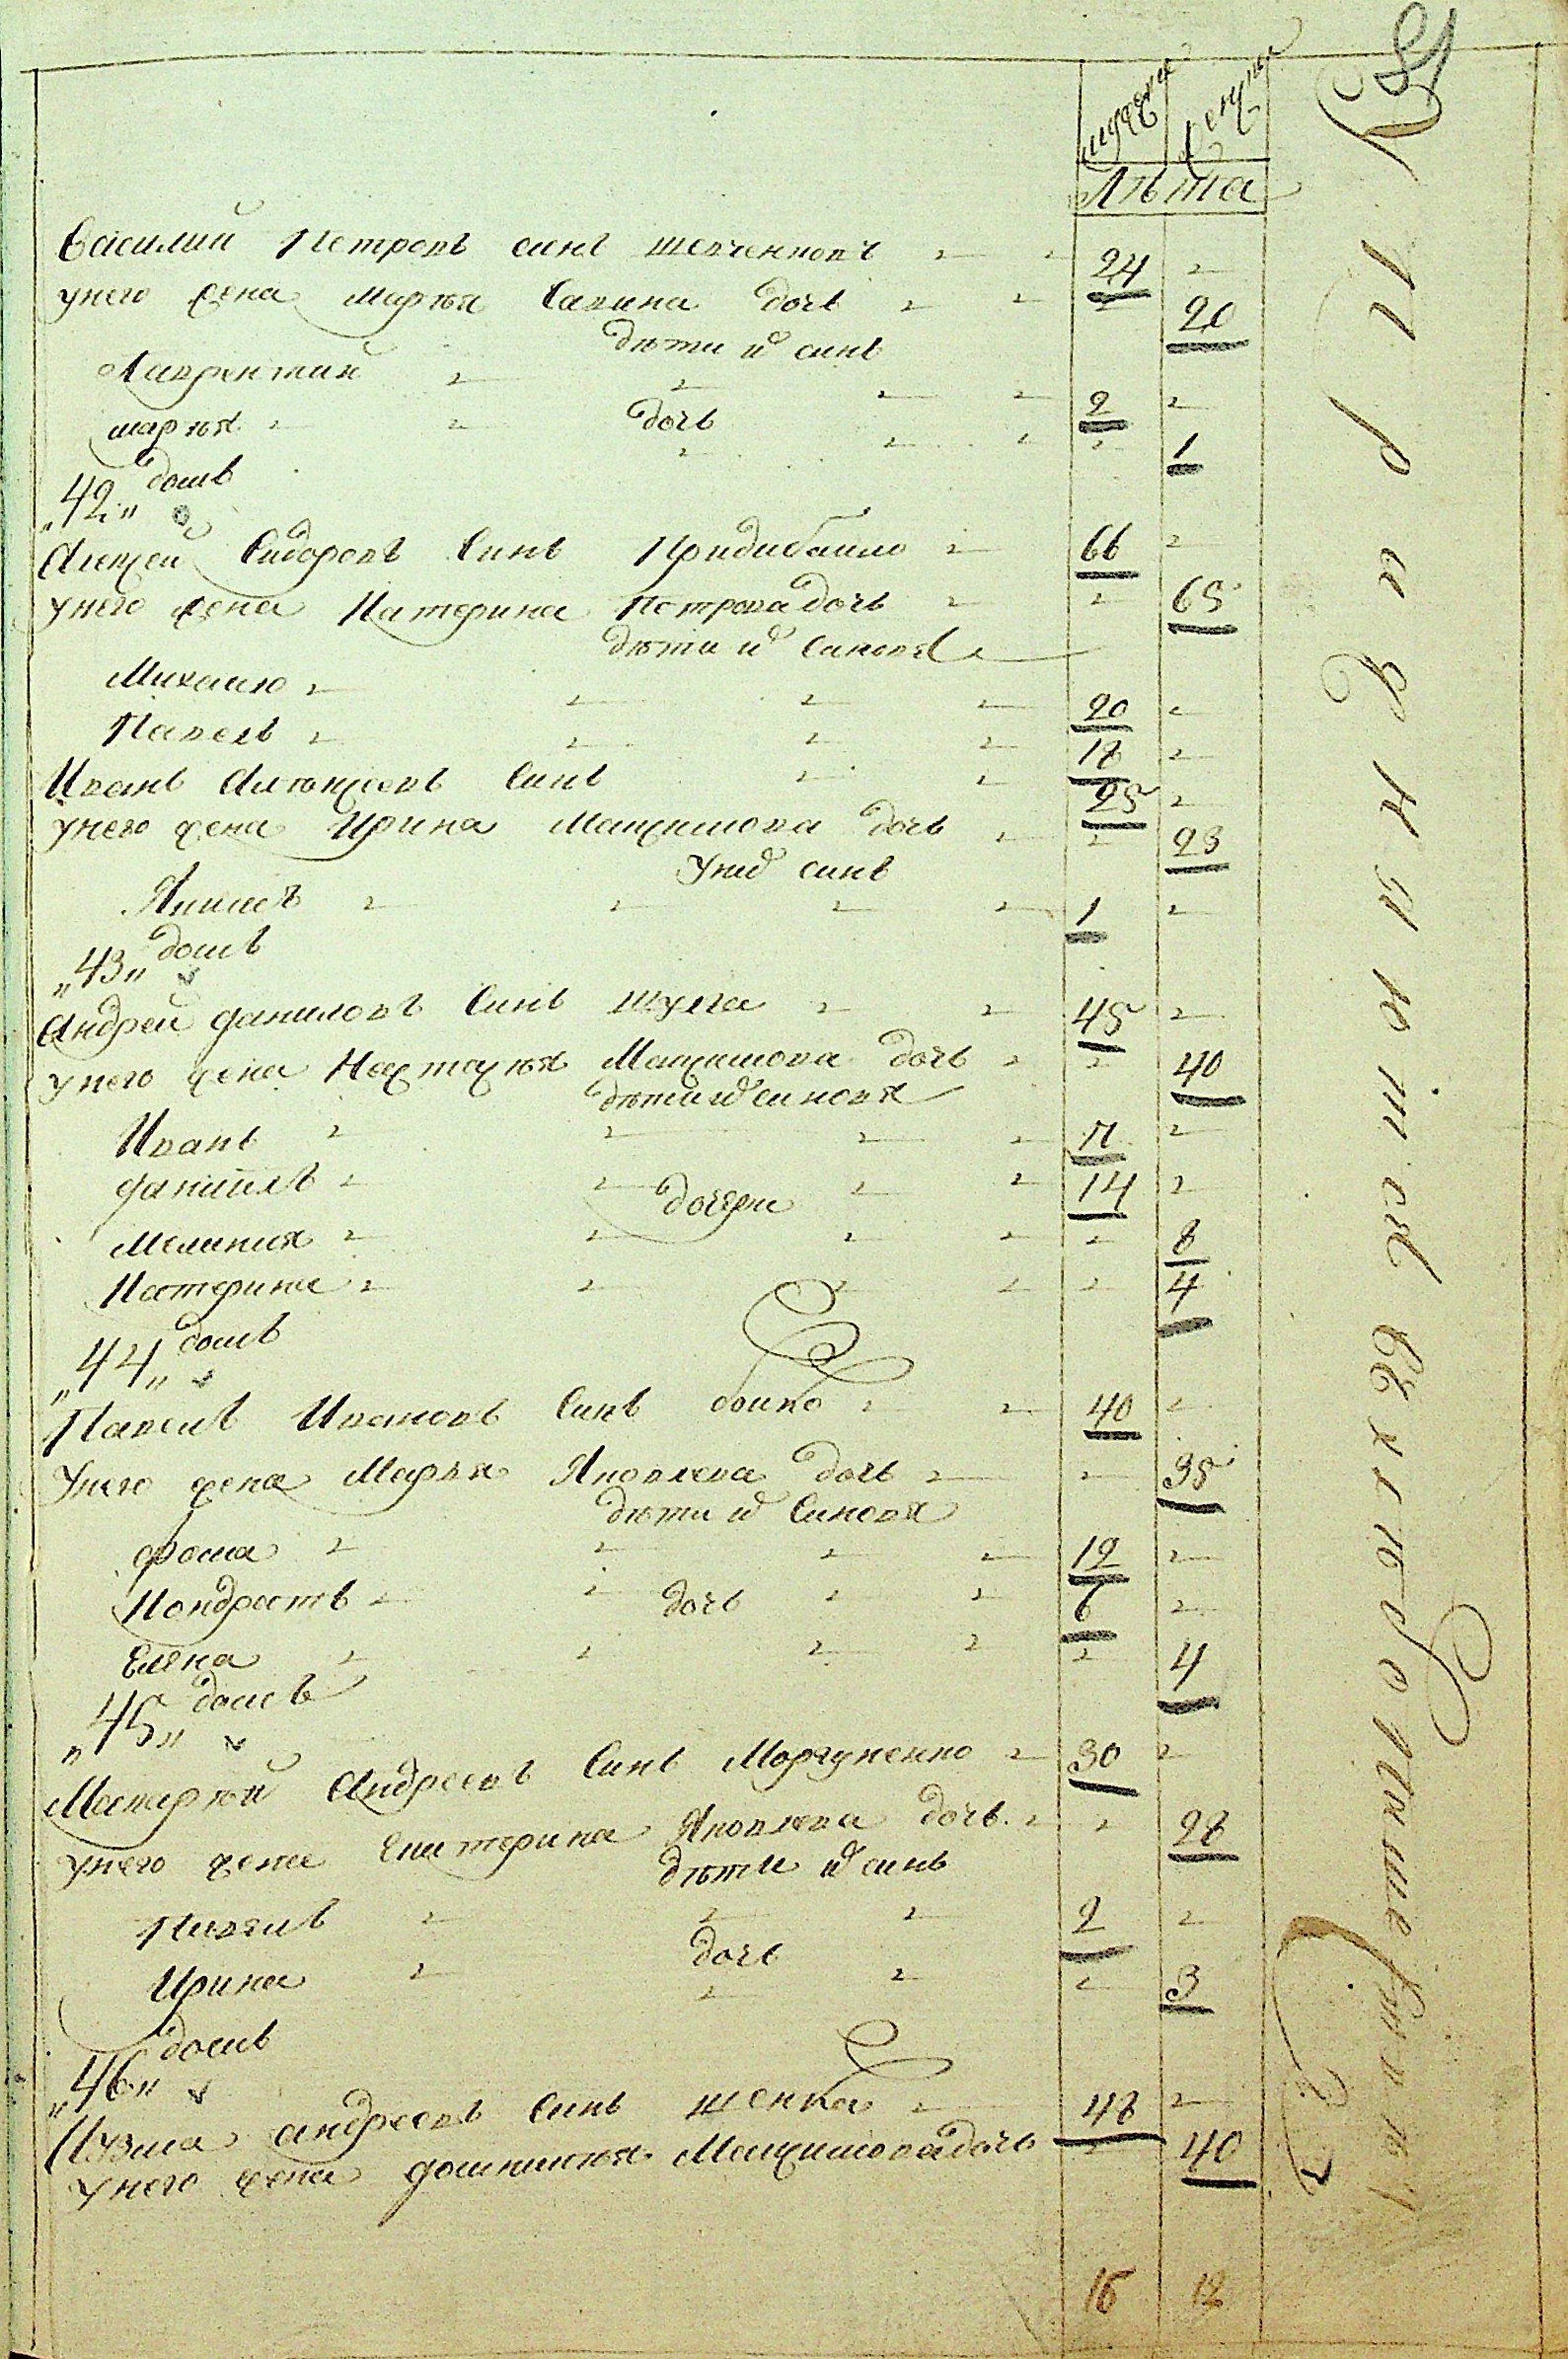 мужска женска
Лѣта
Василий Петровъ синъ шевченковъ 24
унего жена Марѣя Савина дочь 20
дѣти их синъ
Лаврентий 2
дочь
марѣя 1
„42„ домъ
Алексей Сидоровъ Синъ Придибайло 66
унего жена Катерина Петрова дочь 65
дѣти их Синовя
Михайло 20
Павелъ 18
Иванъ Алѣксеевъ Синъ 25
унего жена Ирина Максимова дочь 23
Уних синъ
Якимъ 1
„43„ домъ
Андрей даниловъ Синъ шулга 45
унего жена Настасѣя Максимова дочь 40
дѣти их синовя
Иванъ 17
даниилъ 14
дочери
Мелания 8
Катерина 4
„44„ домъ
Павелъ Ивановъ Синъ бойко 40
Унего жена Марья Яковлева дочь 35
дѣти их Синовя
фома 12
Кондратъ 6
дочь
Елена 4
„45„ домъ
Макарѣй Андреевъ Синъ Моргуненко 30
унего жена Екатерина Яковлева дочь 28
дѣти их синъ
Павелъ 2
дочь
Ирина 3
„46„ домъ
Кузма андреевъ Синъ шенка 48
унего жена домникѣя Максимова дочь 40
16 12